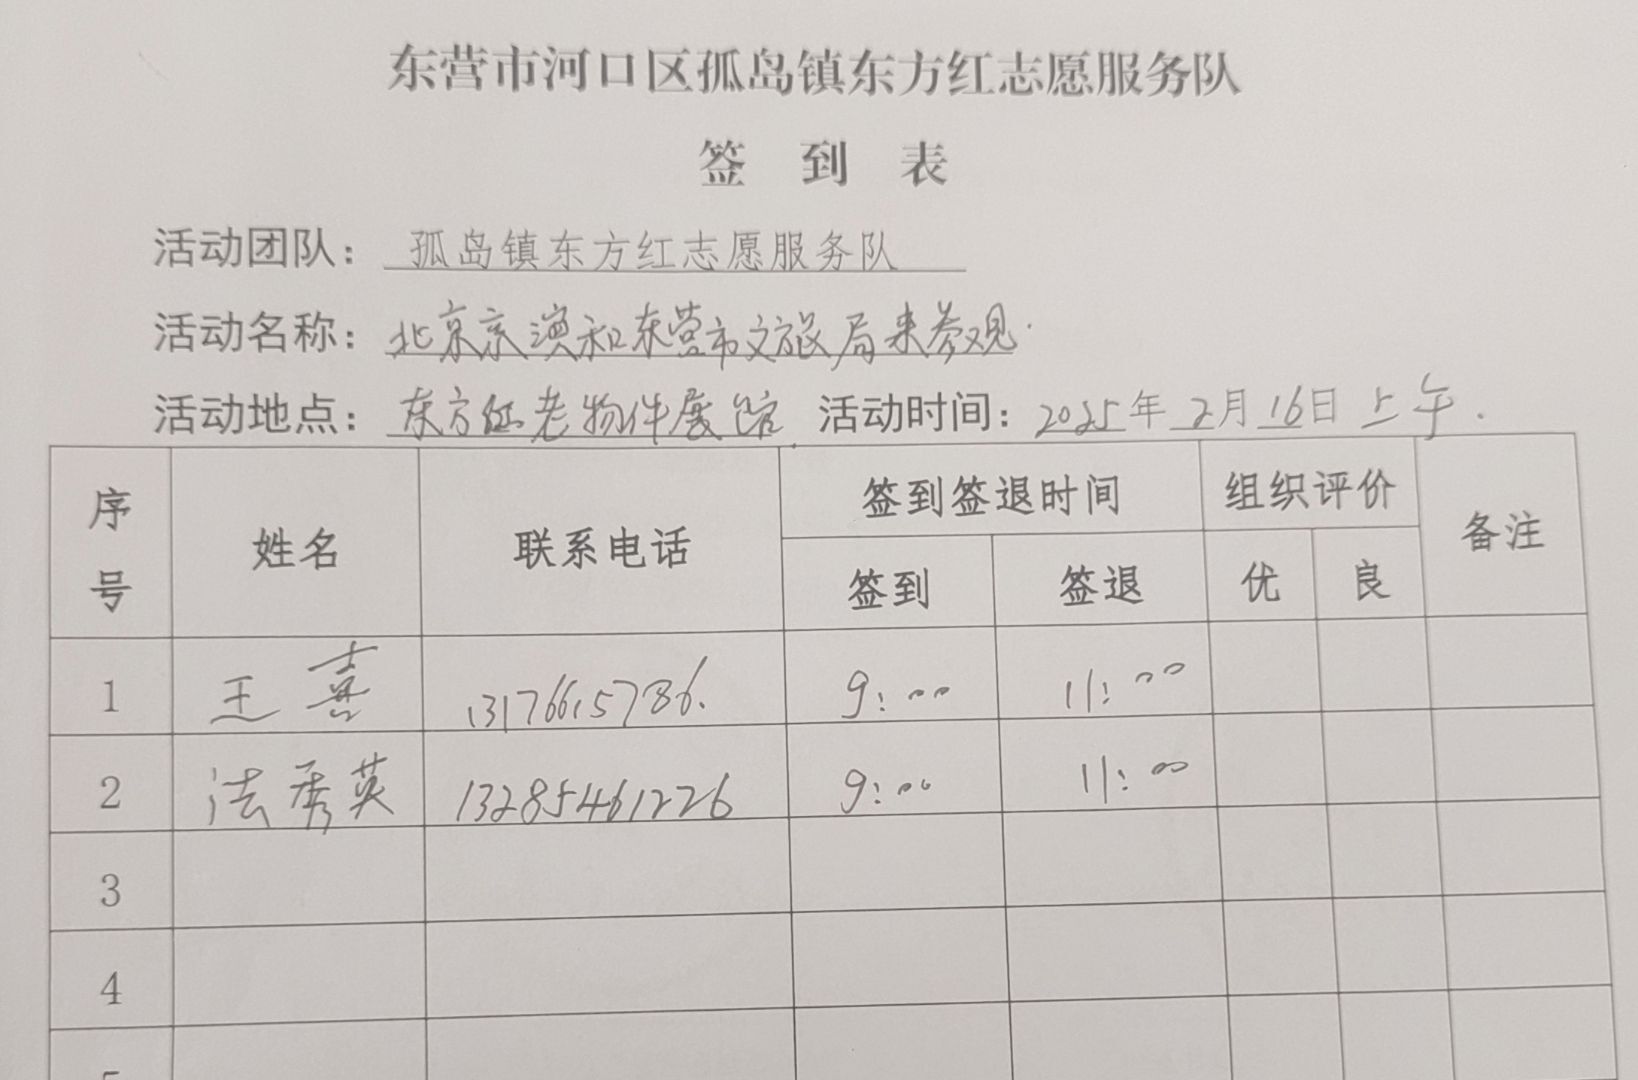 东营市河口区孤岛镇东方红志愿服务队
签 到 表
活动团队：孤岛镇东方红志愿服务队
活动名称：北京京演和东营市文旅局来参观.
活动地点：东方红老物件展馆 活动时间：2025年2月16日上午.
序号 姓名 联系电话 签到签退时间 组织评价 备注
签到 签退 优 良
1 王喜 13176615786. 9:00 11:00
2 法秀英 13285461226 9:00 11:00
3
4